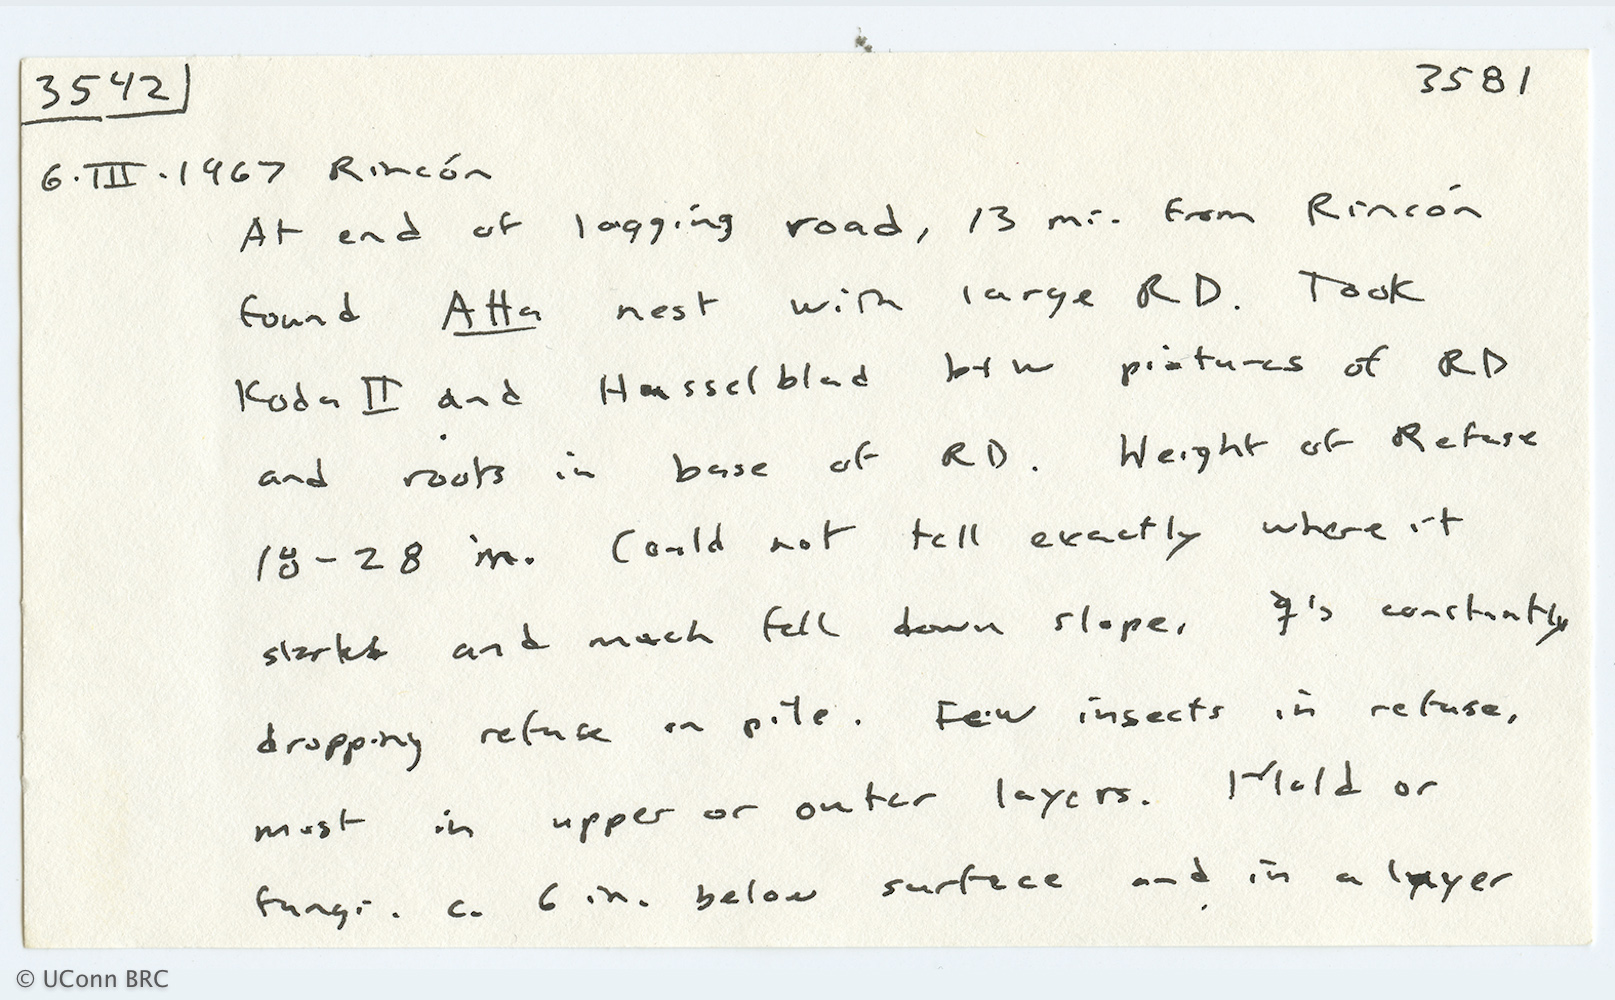 3542 3581
6.III.1967 Rincón
At end of logging road, 13 mi. from Rincón
found Atta nest with large RD. Took
Koda II and Hasselblad b+w pictures of RD
and roots in base of RD. Height of Refuse
18-28 in. Could not tell exactly where it
started and much fell down slope. ☿'s constantly
dropping refuse on pile. Few insects in refuse,
most in upper or outer layers. Mold or
fungi. c. 6 in. below surface and in a layer
© UConn BRC